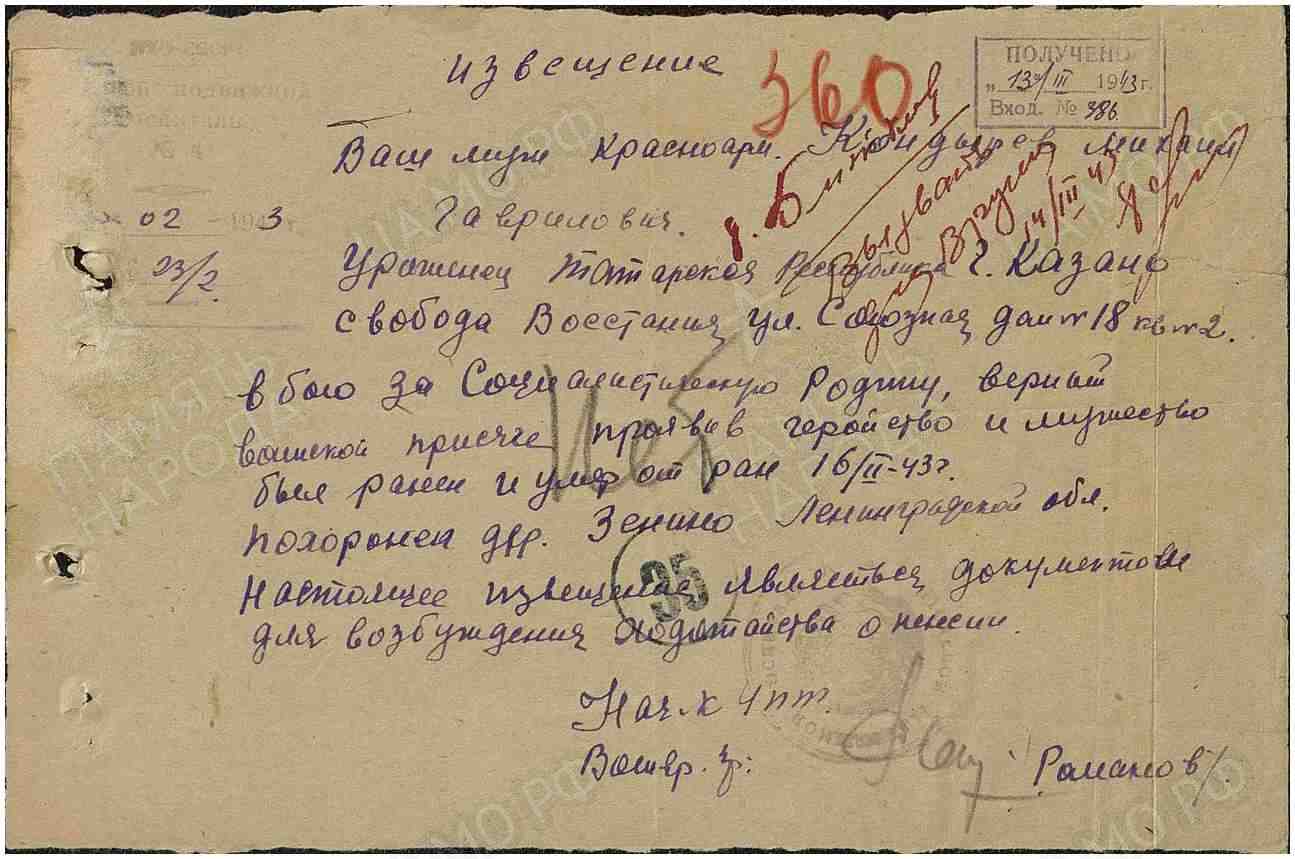 извещение
360
ПОЛУЧЕНО
„13“/III 1943 г.
Вход. № 386
Ваш муж красноарм. Кондырев Михаил
Гаврилович.
02 1943 г.
23/2.
Уроженец Татарская Республика г. Казань
свобода Восстания ул. Союзная дом № 18 кв № 2.
вызвать
вручить
14/III 43
в бою за Социалистическую Родину, верный
воинской присяге проявив геройство и мужество
был ранен и умер от ран 16/II-43г.
похоронен дер. Зенино Ленинградской обл.
Настоящее извещение являеться документом
для возбуждения ходотайства о пенсии.
Нет
35
Нач-к 4 пт.
Романов/.
ПАМЯТЬ НАРОДА
ПАМЯТЬ НАРОДА
ЦАМО.РФ
ЦАМО.РФ